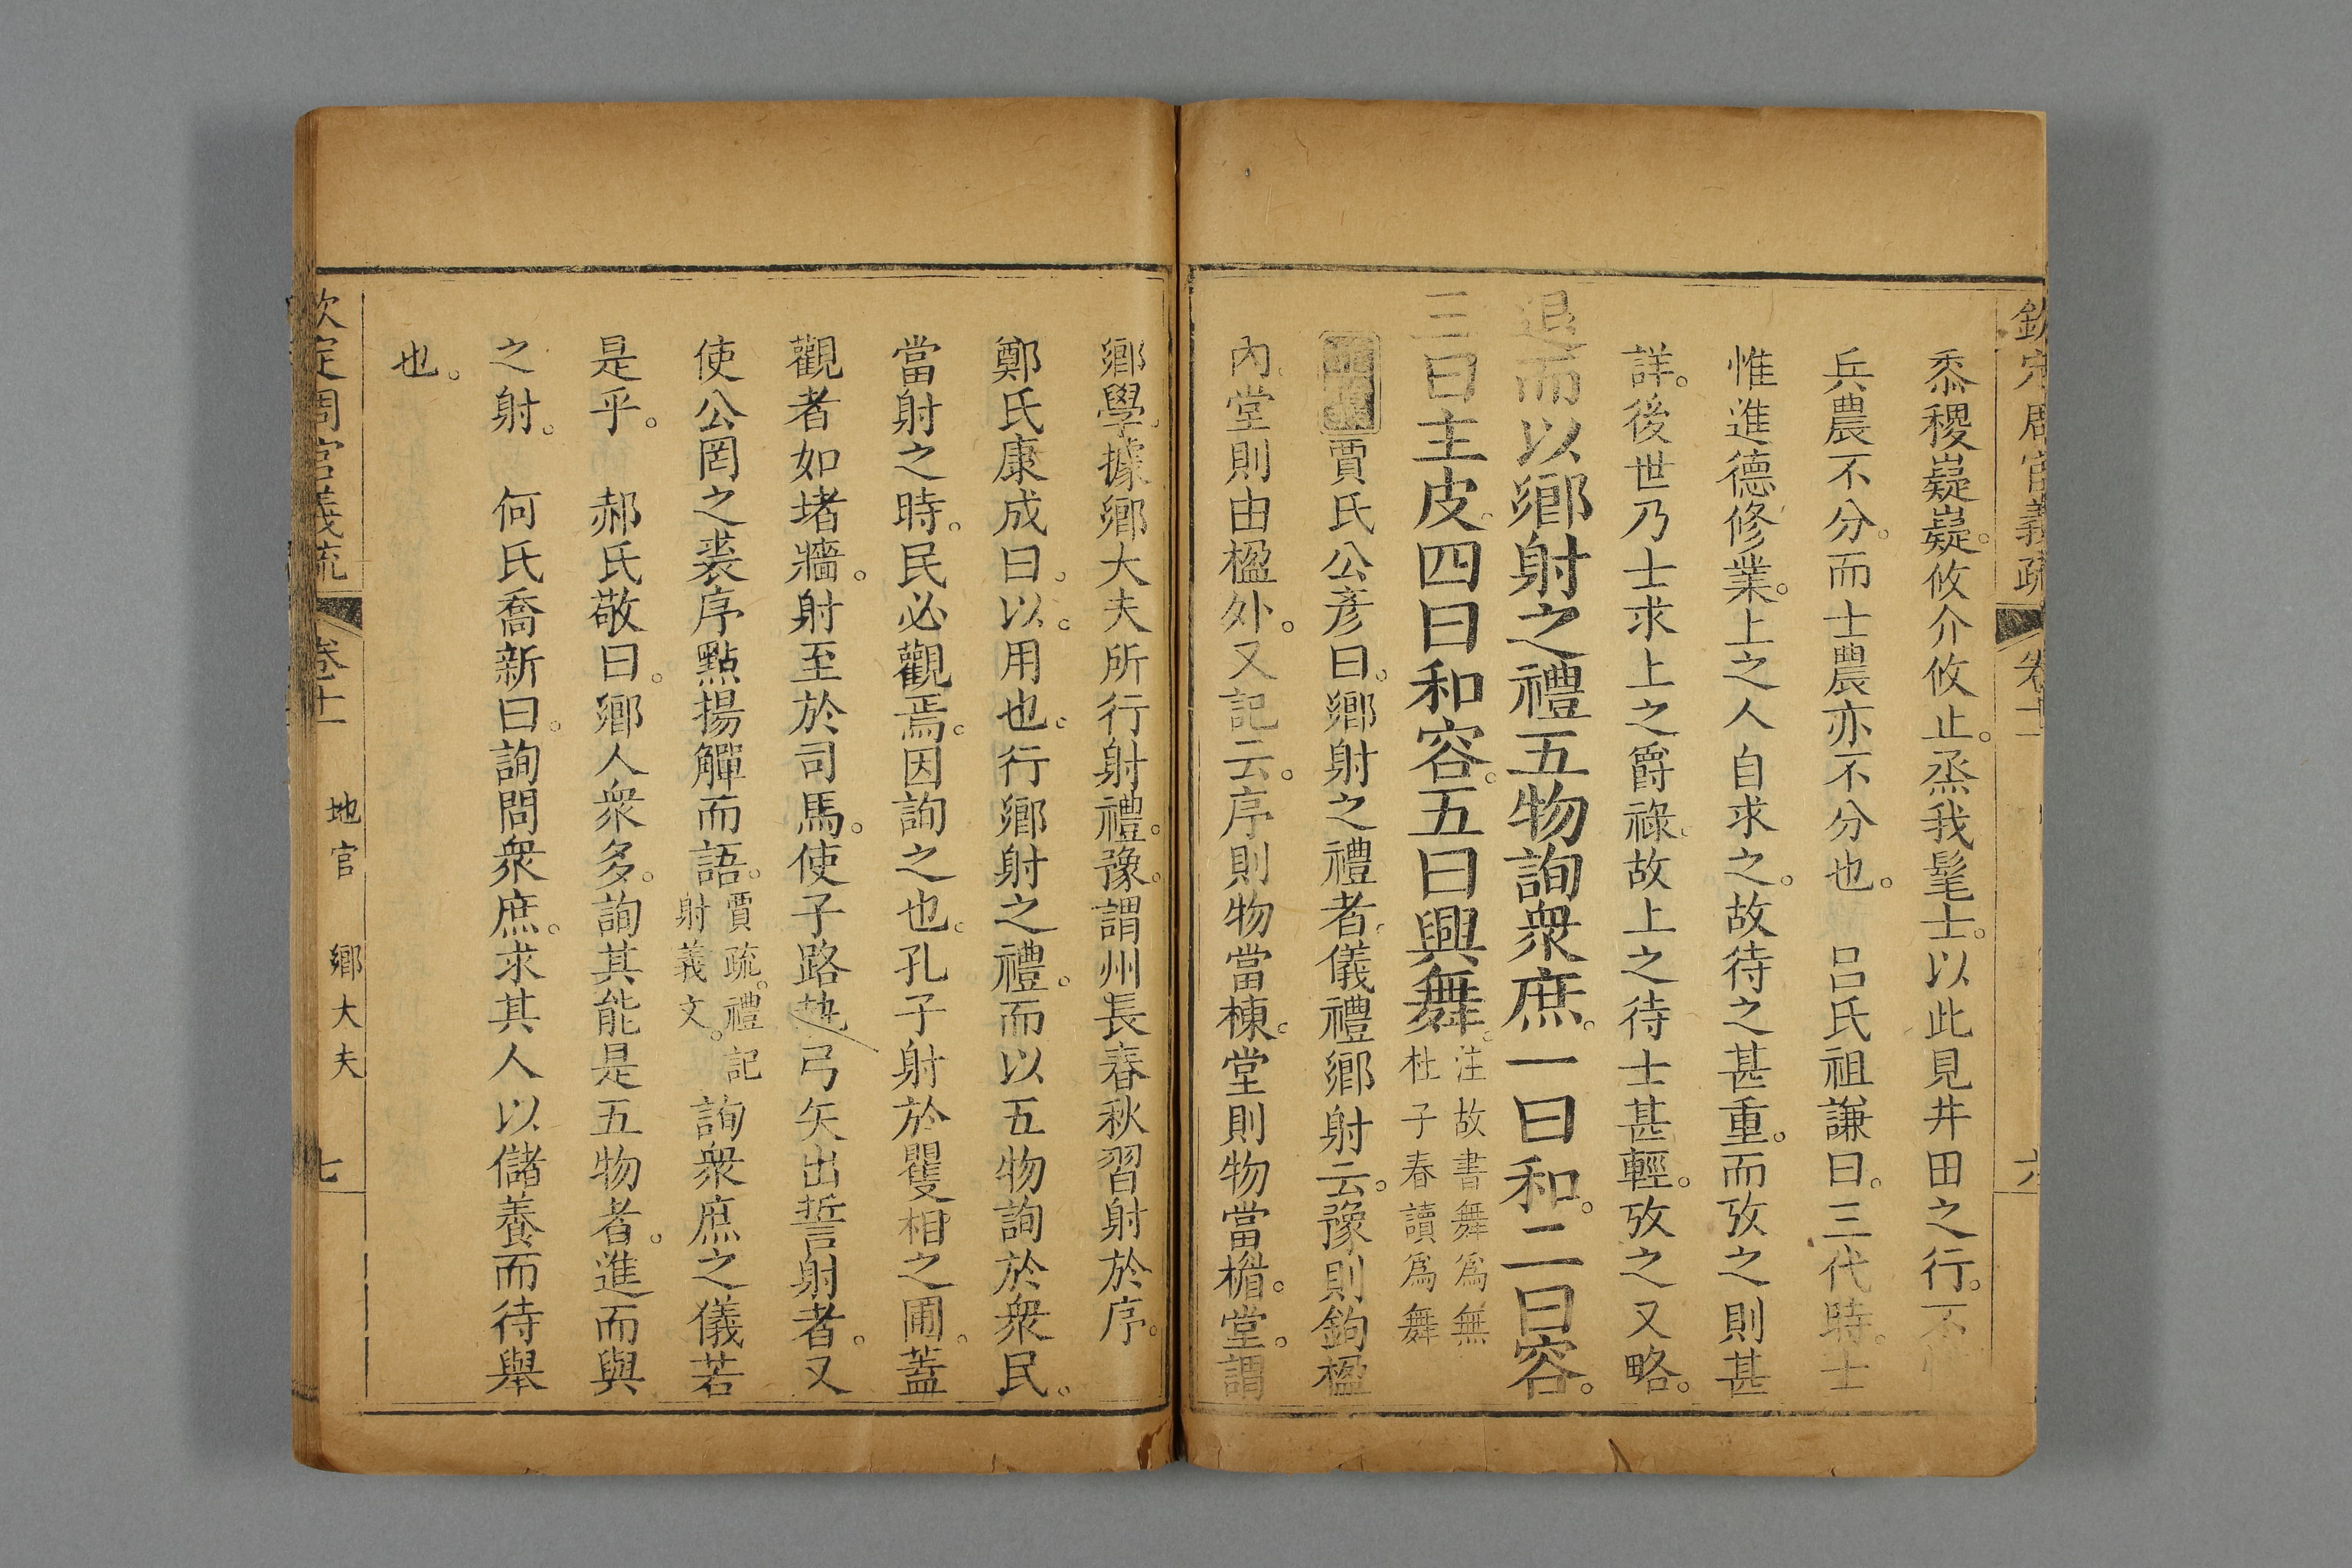 欽定周官義疏 卷十一 六
黍稷嶷嶷。攸介攸止。烝我髦士。以此見井田之行。不
兵農不分。而士農亦不分也。 呂氏祖謙曰。三代時。士
惟進德修業。上之人自求之。故待之甚重。而攷之則甚
詳。後世乃士求上之爵祿。故上之待士甚輕。攷之又略。
退而以鄉射之禮五物詢衆庶。一曰和。二曰容。
三曰主皮。四曰和容。五曰興舞。注故書舞爲無
杜子春讀爲舞
賈氏公彥曰。鄉射之禮者。儀禮鄉射云。豫則鉤楹
內。堂則由楹外。又記云。序則物當棟。堂則物當楣。堂。謂
鄉學。據鄉大夫所行射禮。豫。謂州長春秋習射於序。
鄭氏康成曰。以。用也。行鄉射之禮。而以五物詢於衆民。
當射之時。民必觀焉。因詢之也。孔子射於矍相之圃。蓋
觀者如堵牆。射至於司馬。使子路執弓矢出誓射者。又
使公罔之裘序點揚觶而語。賈疏。禮記
射義文。 詢衆庶之儀若
是乎。 郝氏敬曰。鄉人衆多。詢其能是五物者。進而與
之射。 何氏喬新曰。詢問衆庶。求其人以儲養而待舉
也。
欽定周官義疏 卷十一 地官 鄉大夫 七